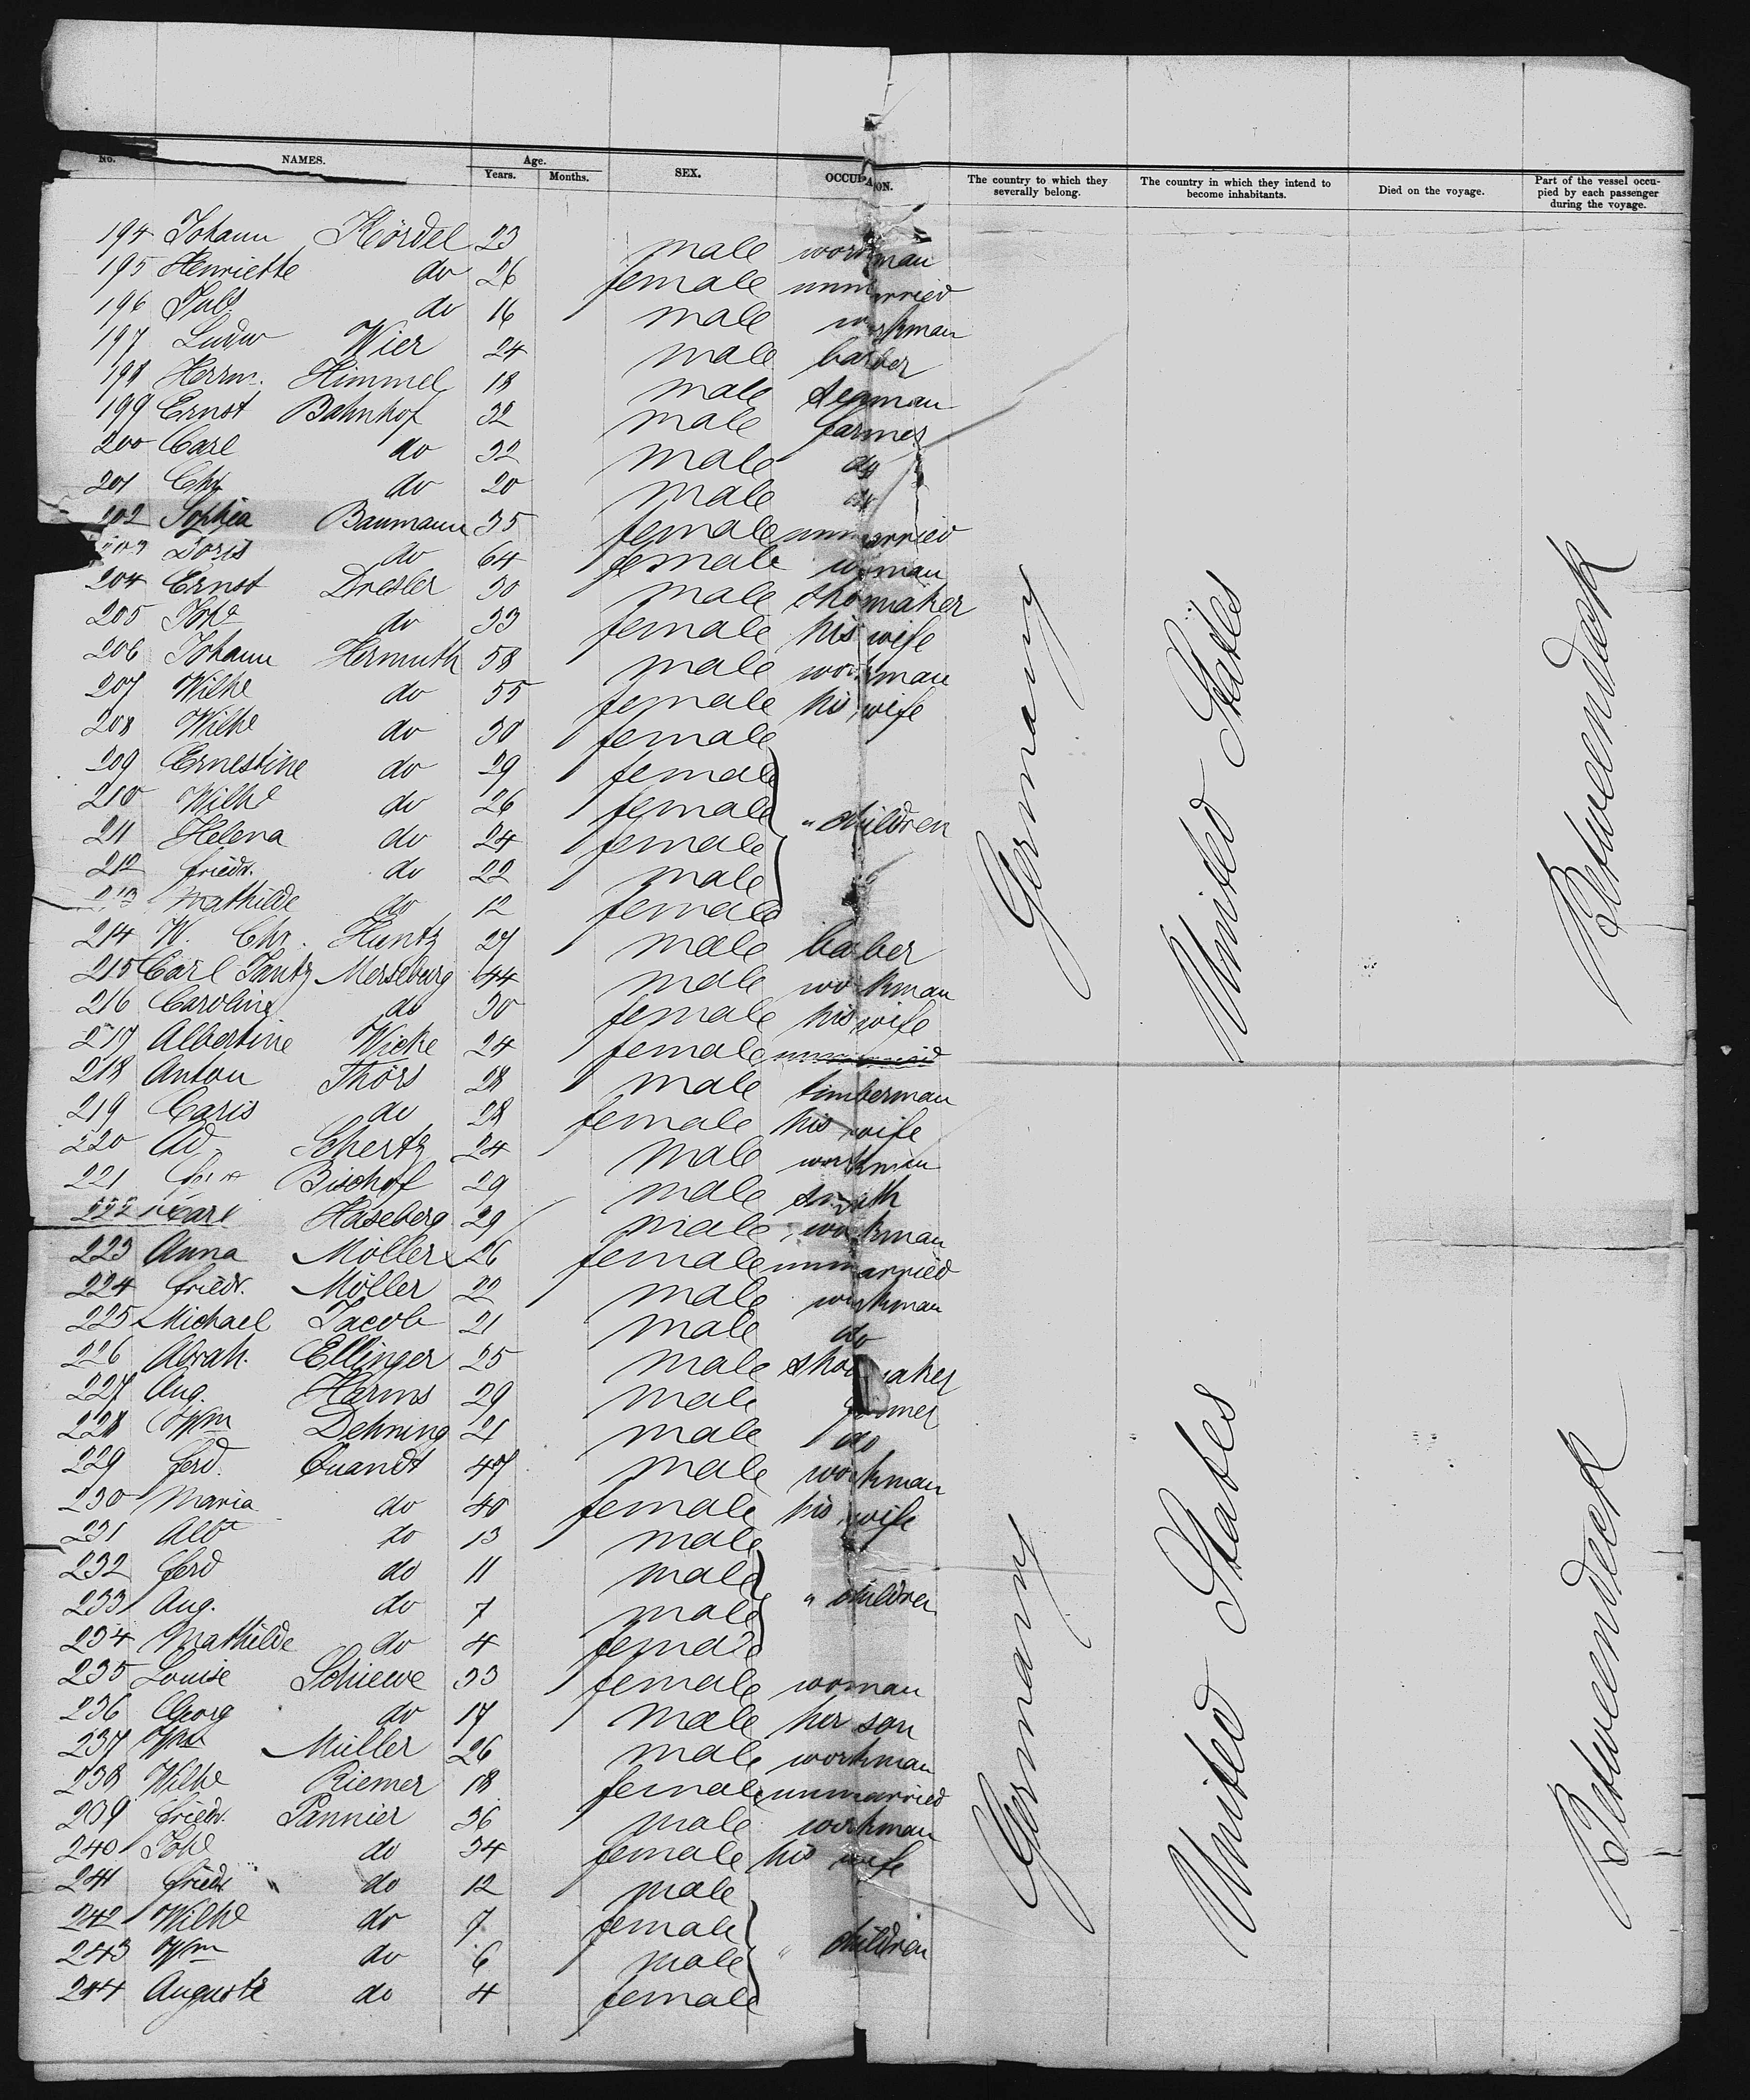 No. NAMES. Age. Years. Months. SEX. OCCUPATION. The country to which they severally belong. The country in which they intend to become inhabitants. Died on the voyage. Part of the vessel occupied by each passenger during the voyage.
194 Johann Hördel 23 male workman
195 Henriette do 26 female unmarried
196 Juls do 16 male workman
197 Ludw Wier 24 male barber
198 Herrm. Himmel 18 male seaman
199 Ernst Bahnhof 32 male farmer
200 Carl do 32 male do
201 Chr do 20 male do
202 Sophia Baumann 35 female unmarried
203 Doris do 64 female woman
204 Ernst Dresler 30 male shomaker
205 do 33 female his wife
206 Johann Hermuth 58 male workman
207 Wilhe do 55 female his wife
208 Wilhe do 30 female
209 Ernestine do 29 female
210 Wilhe do 26 female " children
211 Helena do 24 female
212 Friedr. do 22 male
213 Mathilde do 12 female
214 W. Chr. Huntz 27 male barber
215 Carl Merseburg 44 male workman
216 Caroline do 30 female his wife
217 Albertine Wicke 24 female unmarried
218 Anton Thörs 28 male timberman
219 Caris do 28 female his wife
220 Ad Schertz 24 male workman
221 Bischof 29 male smith
222 Carl Haseberg 29 male workman
223 Anna Möller 26 female unmarried
224 Friedr. Möller 22 male workman
225 Michael Jacob 21 male do
226 Abrah. Ellinger 25 male shoemaker
227 Aug. Harms 29 male farmer
228 Wm Dehning 21 male do
229 Ferd. Quandt 47 male workman
230 Maria do 40 female his wife
231 Albt do 13 male
232 Ferd do 11 male
233 Aug. do 7 male " children
234 Mathilde do 4 female
235 Louise Schiewe 33 female woman
236 Georg do 17 male her son
237 Wm Müller 26 male workman
238 Wilhe Riemer 18 female unmarried
239 Friedr. Pannier 36 male workman
240 Johe do 34 female his wife
241 Friedr do 12 male
242 Wilhe do 7 female
243 Wm do 6 male " children
244 Auguste do 4 female
Germany
United States
Betweendeck
Germany
United States
Betweendeck